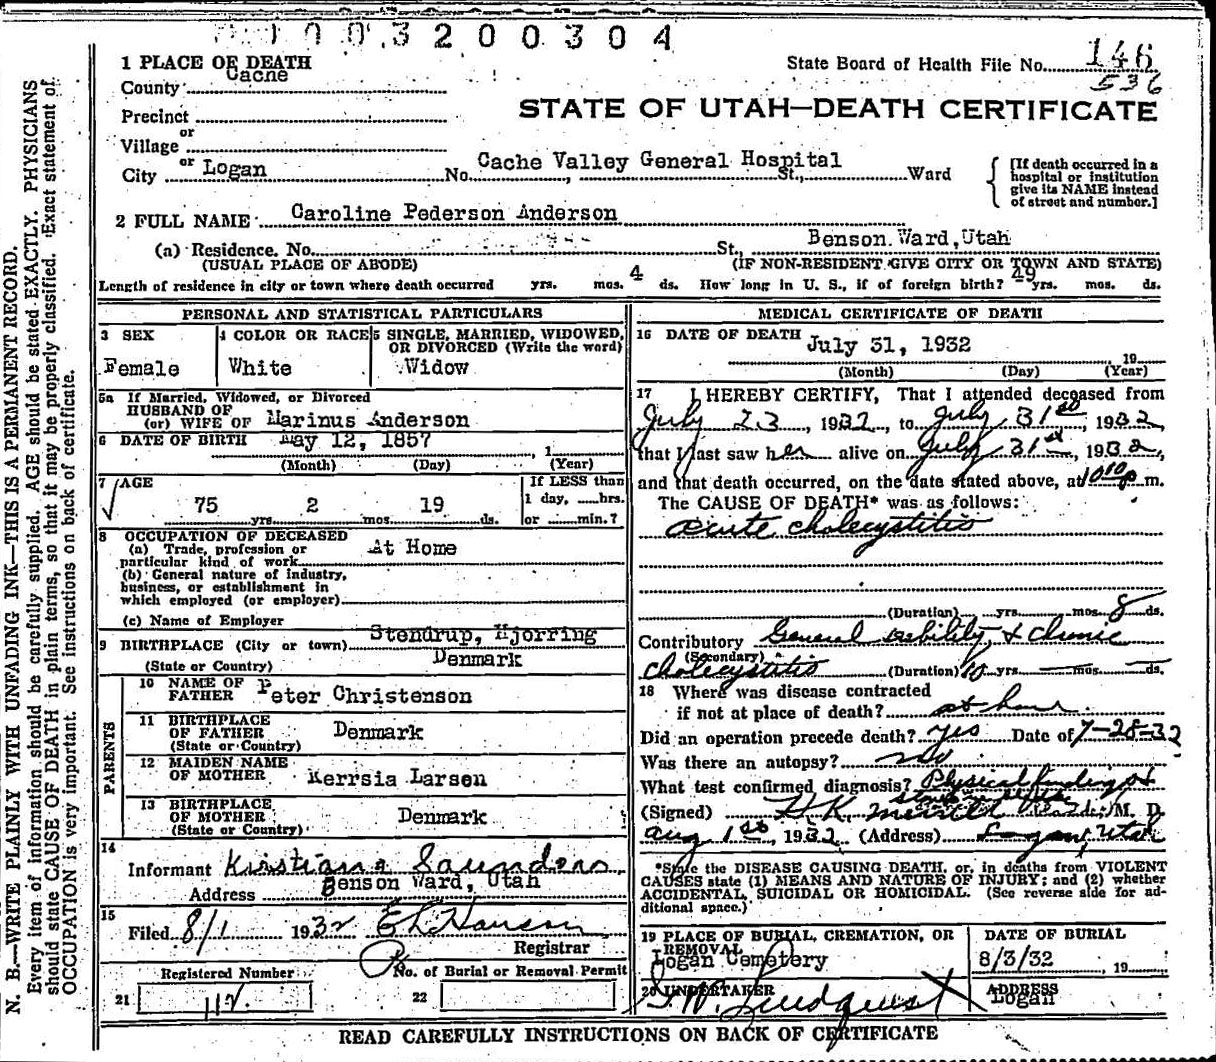 1003200304
1 PLACE OF DEATH
State Board of Health File No. 146
536
County Cache
STATE OF UTAH—DEATH CERTIFICATE
Precinct
or
Village
or
City Logan No. Cache Valley General Hospital St., Ward
[If death occurred in a hospital or institution give its NAME instead of street and number.]
2 FULL NAME Caroline Pederson Anderson
(a) Residence. No. St., Benson Ward, Utah
(USUAL PLACE OF ABODE) (IF NON-RESIDENT GIVE CITY OR TOWN AND STATE)
Length of residence in city or town where death occurred yrs. mos. 4 ds. How long in U. S., if of foreign birth? 49 yrs. mos. ds.
PERSONAL AND STATISTICAL PARTICULARS
3 SEX
Female
4 COLOR OR RACE
White
5 SINGLE, MARRIED, WIDOWED, OR DIVORCED (Write the word)
Widow
5a If Married, Widowed, or Divorced
HUSBAND OF
(or) WIFE OF Marinus Anderson
6 DATE OF BIRTH May 12, 1857 , 1
(Month) (Day) (Year)
7 AGE
75 yrs. 2 mos. 19 ds.
If LESS than
1 day, hrs.
or min.?
8 OCCUPATION OF DECEASED
(a) Trade, profession or
particular kind of work At Home
(b) General nature of industry,
business, or establishment in
which employed (or employer)
(c) Name of Employer
9 BIRTHPLACE (City or town) Stendrup, Hjorring
(State or Country) Denmark
PARENTS
10 NAME OF FATHER Peter Christenson
11 BIRTHPLACE OF FATHER Denmark
(State or Country)
12 MAIDEN NAME OF MOTHER Kerrsia Larsen
13 BIRTHPLACE OF MOTHER Denmark
(State or Country)
14
Informant Kirstiana Saunders
Address Benson Ward, Utah
15
Filed 8/1 1932 E L Hansen
Registrar
Registered Number
21 112
No. of Burial or Removal Permit
22
MEDICAL CERTIFICATE OF DEATH
16 DATE OF DEATH July 31, 1932 19
(Month) (Day) (Year)
17 I HEREBY CERTIFY, That I attended deceased from
July 23, 1932, to July 31st, 1932,
that I last saw her alive on July 31st, 1932,
and that death occurred, on the date stated above, at 10 10 p m.
The CAUSE OF DEATH* was as follows:
Acute cholecystitis
(Duration) yrs. mos. 8 ds.
Contributory General debility, & chronic
(Secondary)
cholecystitis (Duration) 10 yrs. mos. ds.
18 Where was disease contracted
if not at place of death? at home
Did an operation precede death? yes Date of 7-28-32
Was there an autopsy? no
What test confirmed diagnosis? Physical findings &
(Signed) H. K. Merrill M. D.
Aug 1st, 1932 (Address) Logan, Utah
*State the DISEASE CAUSING DEATH, or, in deaths from VIOLENT
CAUSES state (1) MEANS AND NATURE OF INJURY; and (2) whether
ACCIDENTAL, SUICIDAL OR HOMICIDAL. (See reverse side for ad-
ditional space.)
19 PLACE OF BURIAL, CREMATION, OR REMOVAL
Logan Cemetery
DATE OF BURIAL
8/3/32 , 19
20 UNDERTAKER
Lindquist
ADDRESS
Logan
READ CAREFULLY INSTRUCTIONS ON BACK OF CERTIFICATE
N. B.—WRITE PLAINLY WITH UNFADING INK—THIS IS A PERMANENT RECORD.
Every item of information should be carefully supplied. AGE should be stated EXACTLY. PHYSICIANS
should state CAUSE OF DEATH in plain terms, so that it may be properly classified. Exact statement of
OCCUPATION is very important. See instructions on back of certificate.